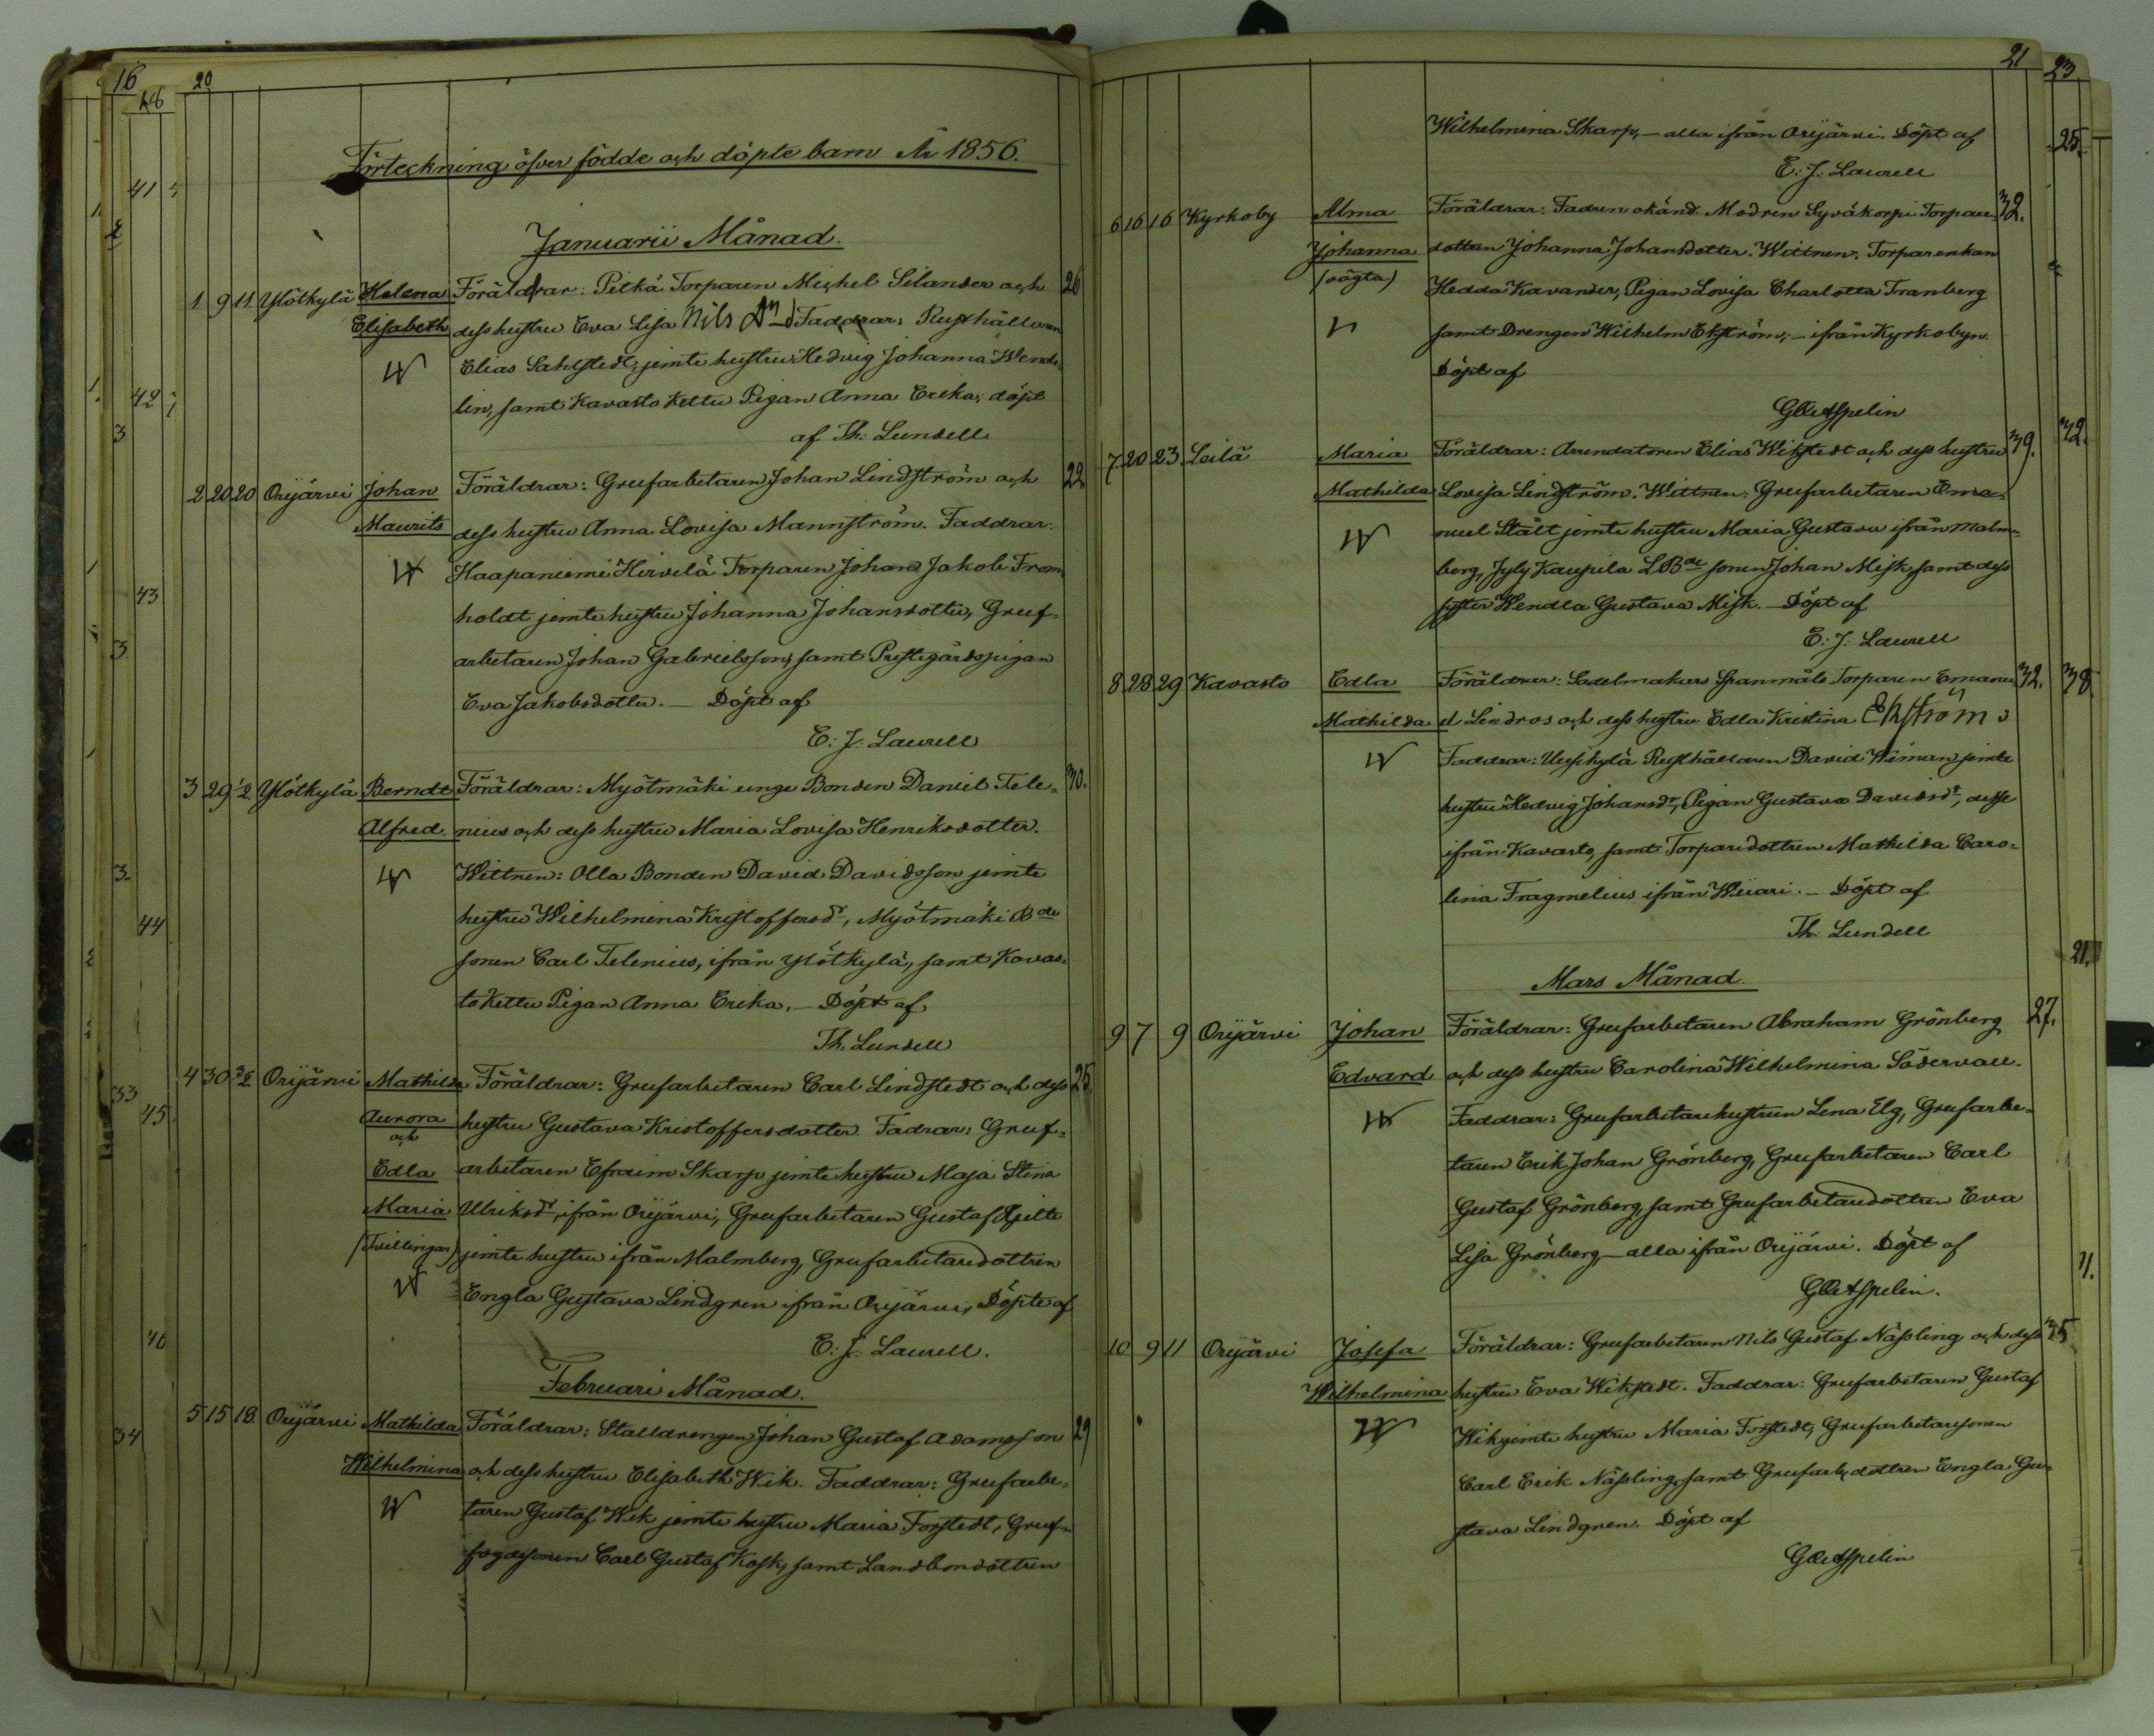 16
18
20
Förteckning öfver födde och döpte barn År 1856.
Januarii Månad.
1 9 11 Ylötkylä Helena Föräldrar: Pitkä Torparen Michel Silander och 26
Elisabeth dess hustru Eva Lisa Nils Dr Faddrar: Rusthållaren
Elias Sahlstedt, jemte hustru Hedvig Johanna Wende-
lin, samt Kavasto Kettu Pigan Anna Erika, döpt
af Th: Lundell
2 20 20 Orijärvi Johan Föräldrar: Grufarbetaren Johan Lindström och 22
Maurits dess hustru Anna Lovisa Mannström. Faddrar:
Haapaniemi Hirvelä Torparen Johan Jakob From-
holdt jemte hustru Johanna Johansdotter, Gruf-
arbetaren Johan Gabrielsson, samt Prestgårdspigan
Eva Jakobsdotter. — Döpt af
E: J: Laurell
3 29 1/2 Ylötkylä Berndt Föräldrar: Myötmäki unge Bonden Daniel Tele- 30.
Alfred. nius och dess hustru Maria Lovisa Henriksdotter.
Wittnen: Olla Bonden David Davidsson jemte
hustru Wilhelmina Kristoffersdr, Myötmäki Bde
sonen Carl Telenius, ifrån Ylötkylä, samt Kavas-
to Kettu Pigan Anna Erika. — Döpt af
Th. Lundell
4 30 3/2 Orijärvi Mathilda Föräldrar: Grufarbetaren Carl Lindstedt och dess 25
Aurora hustru Gustava Kristoffersdotter. Fadrar: Gruf-
och
Edla arbetaren Efraim Skarp jemte hustru Maja Stina
Maria Ulriksdr, ifrån Orijärvi, Grufarbetaren Gustaf Hjelte
(Tvillingar) jemte hustru ifrån Malmberg, Grufarbetaredottren
Engla Gustava Lindgren ifrån Orijärvi, Döpte af
E: J: Laurell.
Februari Månad.
5 15 18 Orijärvi Mathilda Föräldrar: Stalldrengen Johan Gustaf Adamsson 29
Wilhelmina och dess hustru Elisabeth Wik. Faddrar: Grufarbe-
taren Gustaf Wik jemte hustru Maria Forstedt, Gruf-
fogdesonen Carl Gustaf Kosk, samt Landbondottren
21
23
Wilhelmina Skarp, — alla ifrån Orijärvi. Döpt af
E: J: Laurell
6 16 16 Kyrkoby Alma Föräldrar: Fadren okänd. Modren Syväkorpi Torpare- 32.
Johanna dottren Johanna Johansdotter. Wittnen: Torparenkan
(oägta) Hedda Kavander, Pigan Lovisa Charlotta Tranberg
samt Drengen Wilhelm Ekström, — ifrån Kyrkobyn.
Döpt af
G Oe Aspelin
7 20 23 Leilä Maria Föräldrar: Arrendatoren Elias Wikstedt och dess hustru 39.
Mathilda Lovisa Lindström. Wittnen: Grufarbetaren Ema-
nuel Stält jemte hustru Maria Gustava ifrån Malm-
berg, Jyly Kaupila LBde sonen Johan Misk, samt dess
syster Wendla Gustava Misk. — Döpt af
E: J: Laurell
8 28 29 Kavasto Edla Föräldrar: Sadelmakars Spanmåls Torparen Emanu- 32.
Mathilda el Lindros och dess hustru Edla Kristina Ekström
Faddrar: Uusikylä Rusthållaren David Wiman jemte
hustru Hedvig Johansdr, Pigan Gustava Davidsdr, desse
ifrån Kavasto, samt Torparedottren Mathilda Caro-
lina Fragmelius ifrån Wiiari. — Döpt af
Th. Lundell
Mars Månad.
9 7 9 Orijärvi Johan Föräldrar: Grufarbetaren Abraham Grönberg 27.
Edvard och dess hustru Carolina Wilhelmina Södervall.
Faddrar: Grufarbetarehustrun Lena Elg, Grufarbe-
taren Erik Johan Grönberg, Grufarbetaren Carl
Gustaf Grönberg, samt Grufarbetaredottren Eva
Lisa Grönberg, — alla ifrån Orijärvi. Döpt af
G Oe Aspelin.
10 9 11 Orijärvi Josefa Föräldrar: Grufarbetaren Nils Gustaf Nässling och dess 25
Wilhelmina hustru Eva Wikstedt. Faddrar: Grufarbetaren Gustaf
Wik jemte hustru Maria Forstedt, Grufarbetaresonen
Carl Erik Nässling, samt Grufarb. dottren Engla Gu-
stava Lindgren. Döpt af
G Oe Aspelin